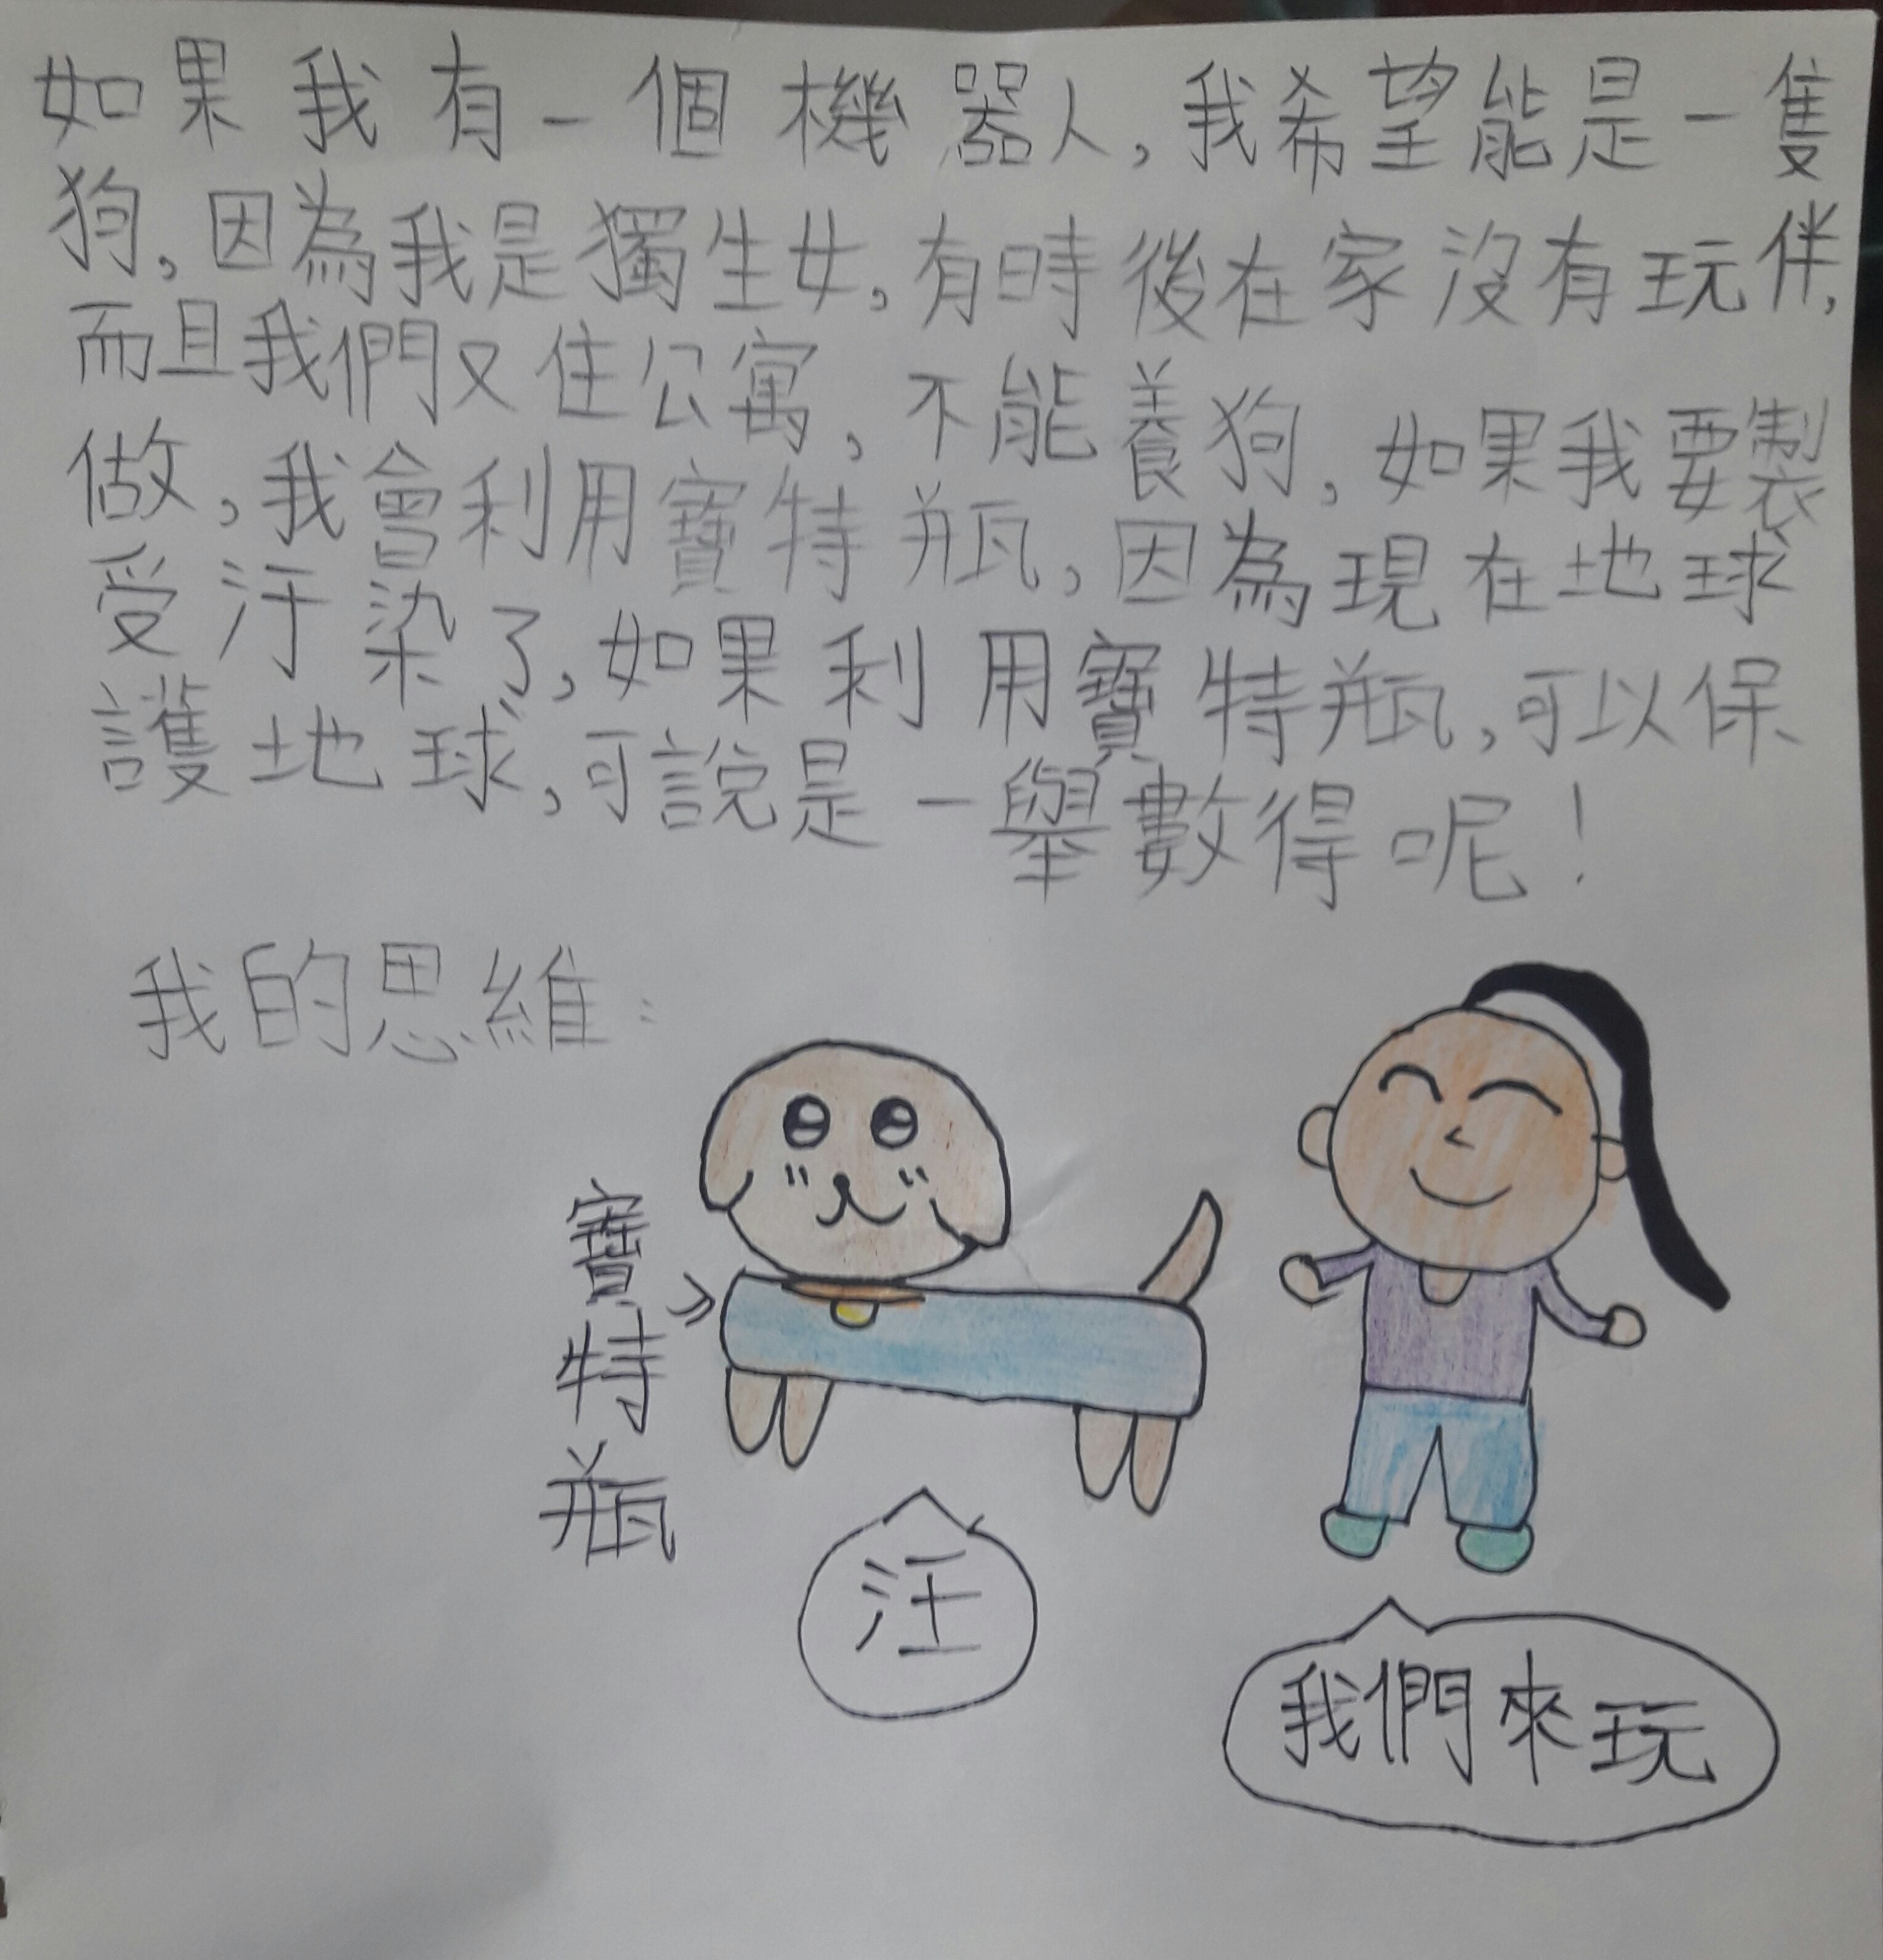 如果我有一個機器人,我希望能是一隻
狗,因為我是獨生女,有時後在家沒有玩伴,
而且我們又住公寓,不能養狗,如果我要製
做,我會利用寶特瓶,因為現在地球
受汙染了,如果利用寶特瓶,可以保
護地球,可說是一舉數得呢!
我的思維:
寶特瓶
汪
我們來玩